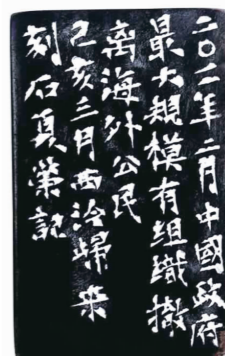 二〇一一年二月中國政府
最大規模有組織撤
离海外公民
己亥三月西泠歸来
刻石頁榮記